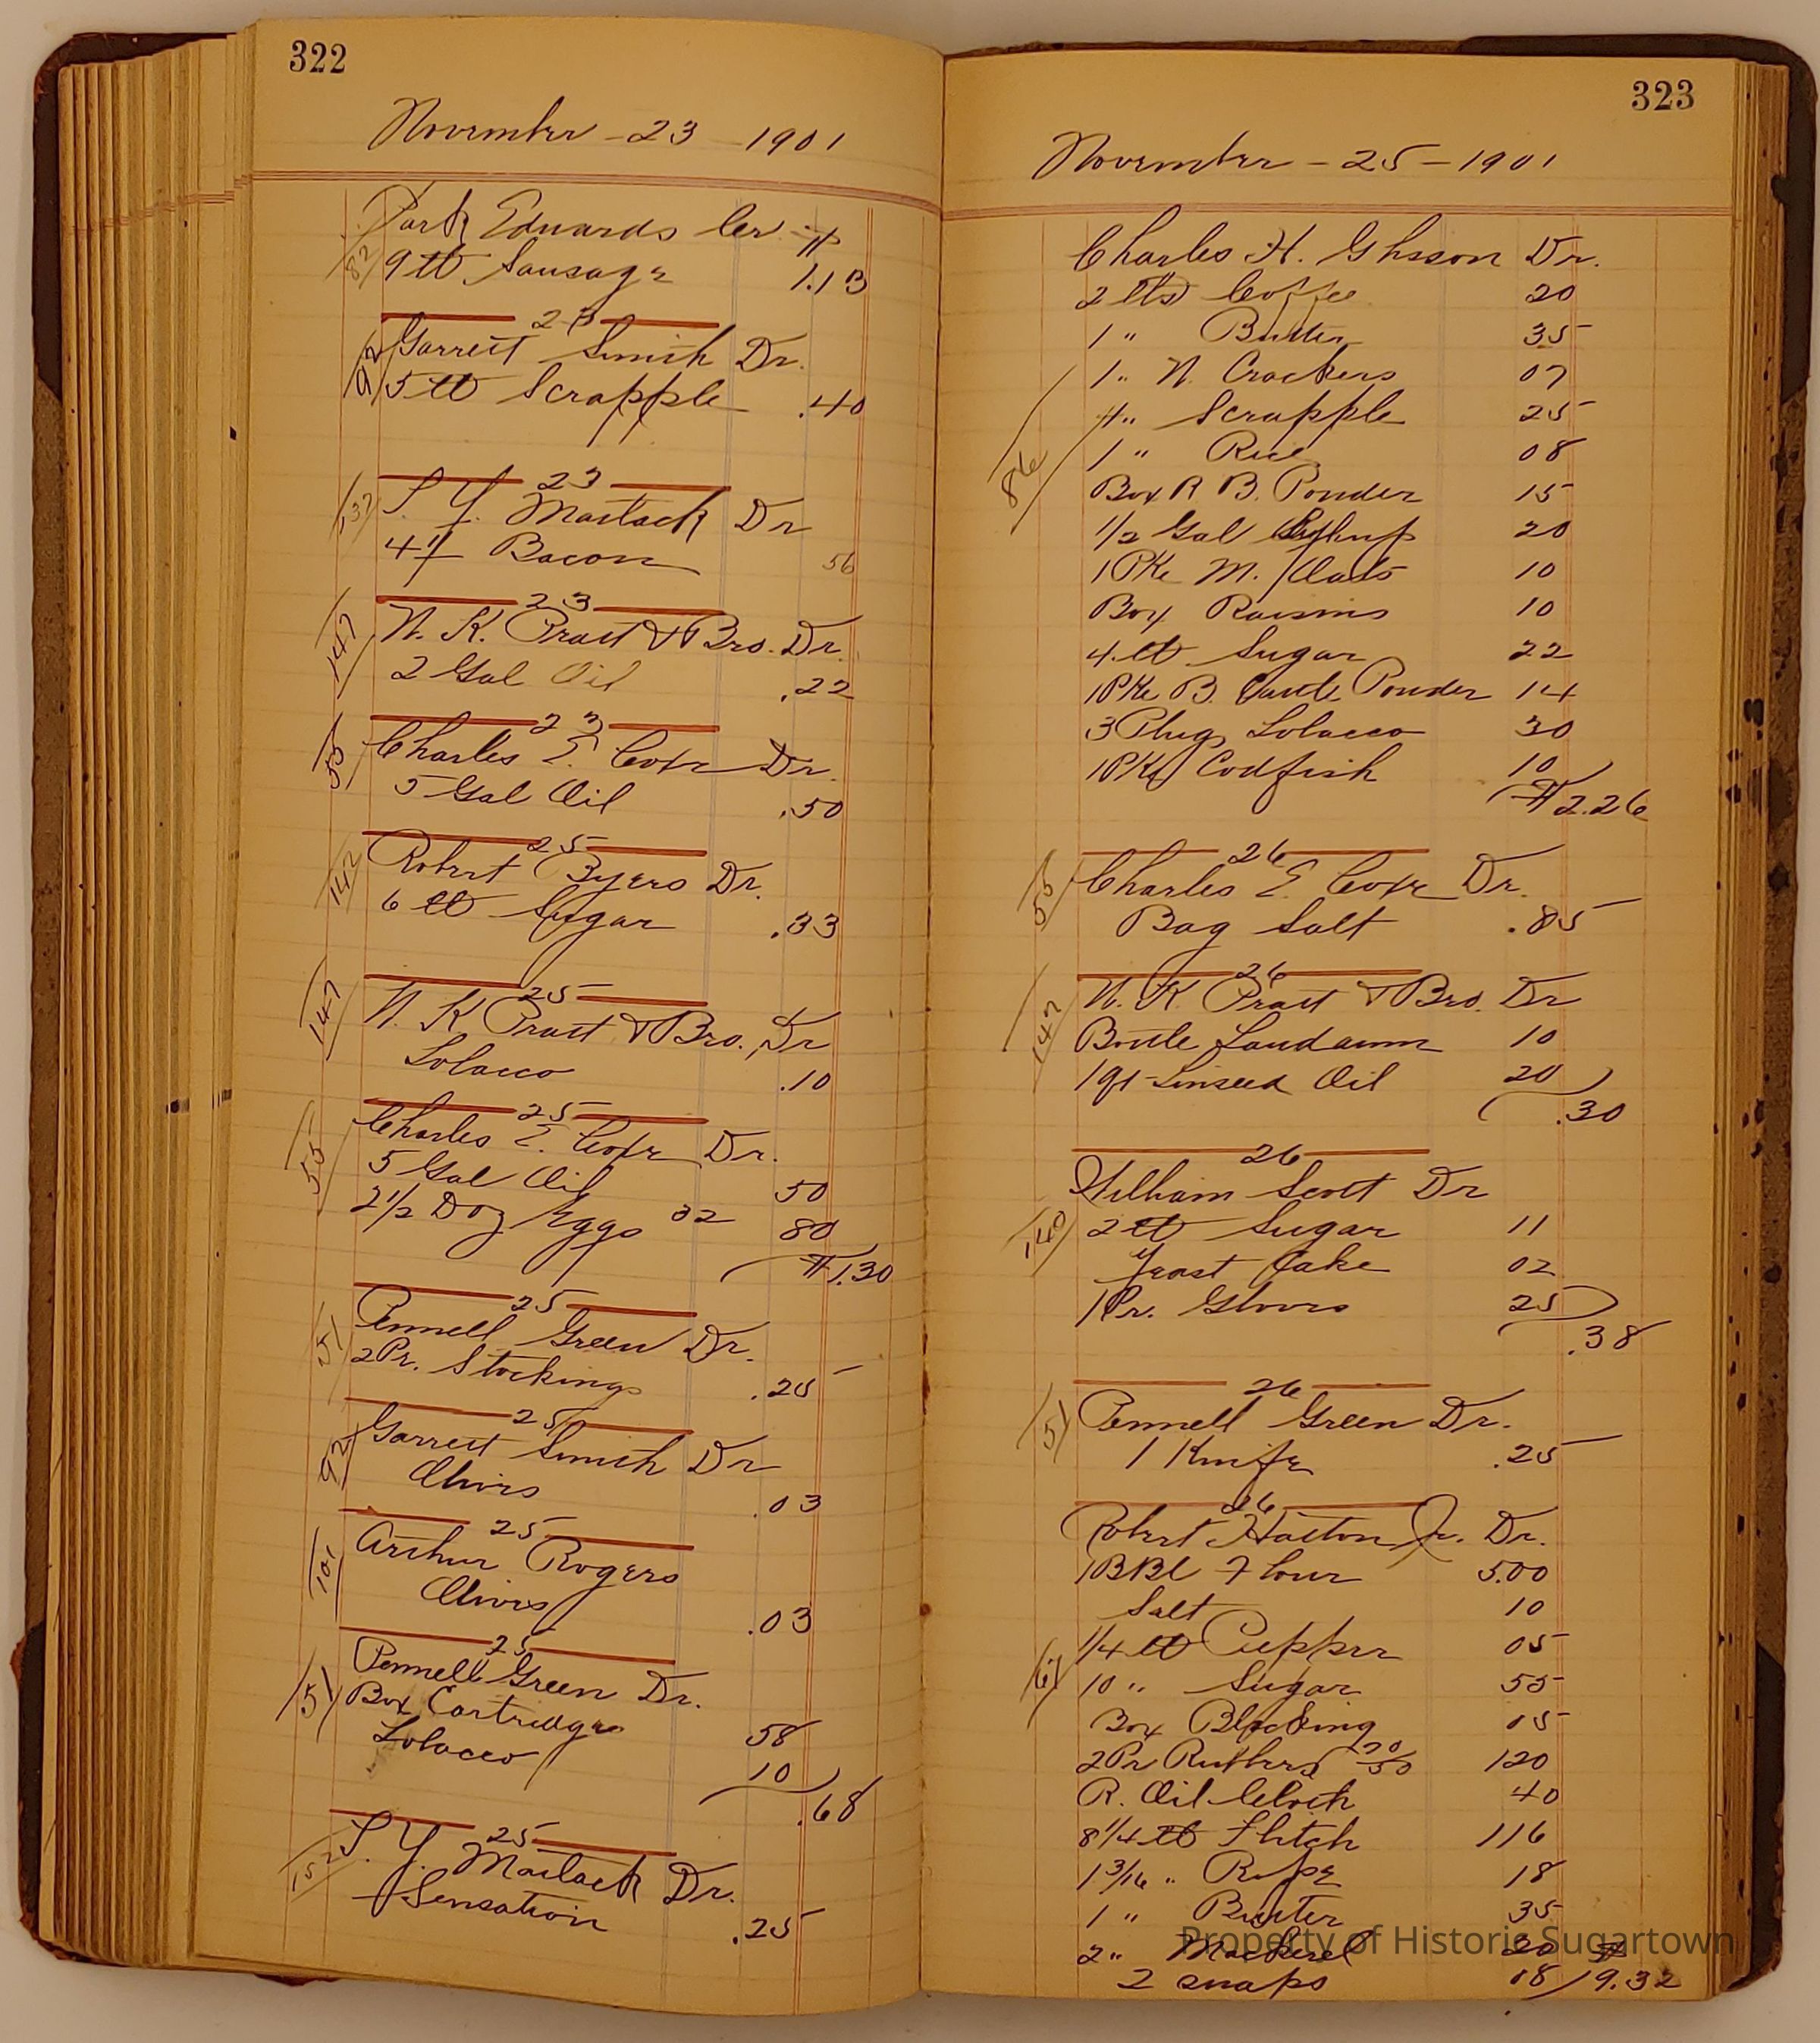 322
November - 23 - 1901
Park Edwards Cr. $
82 9 lb Sausage 1.13
23
92 Garrett Smith Dr.
5 lb Scrapple .40
23
137 S. Y. Matlack Dr
4 # Bacon 56
23
147 N. K. Pratt & Bro. Dr.
2 Gal Oil .22
23
55 Charles E. Coxe Dr.
5 Gal Oil .50
25
142 Robert Byers Dr.
6 lb Sugar .33
25
147 N. K Pratt & Bro. Dr
Tobacco .10
25
55 Charles E. Coxe Dr.
5 Gal Oil 50
2 1/2 Doz Eggs 32 80
$1.30
25
51 Pennell Green Dr.
2 Pr. Stockings .25
25
92 Garrett Smith Dr
Olives .03
25
101 Arthur Rogers
Olives .03
25
51 Pennell Green Dr.
Box Cartridges 58
Tobacco 10
.68
25
152 S. Y. Matlack Dr.
Sensation .25
323
November - 25 - 1901
Charles H. Dr.
2 lbs Coffee 20
1 " Butter 35
1 " N. Crackers 07
4 " Scrapple 25
86 1 " Rice 08
Box R. B. Powder 15
1/2 Gal Syrup 20
1 Pke M. Oats 10
Box Raisins 10
4 lb Sugar 22
1 Pke B. Powder 14
3 Plugs Tobacco 30
1 Pke Codfish 10
$2.26
26
55 Charles E Coxe Dr.
Bag Salt .85
26
147 N. K. Pratt & Bro. Dr
Bottle Laudanum 10
1 qt Linseed Oil 20
.30
26
William Scott Dr
140 2 lb Sugar 11
Yeast Cake 02
1 Pr. Gloves 25
.38
26
51 Pennell Green Dr.
1 Knife .25
26
Robert Hatton Jr. Dr.
1 BBl Flour 5.00
Salt 10
1/4 lb Pepper 05
61 10 " Sugar 55
Box Blacking 05
2 Pr Rubbers 70/50 120
R. Oil Cloth 40
8 1/4 lb Flitch 116
1 3/16 " Rope 18
1 " Butter 35
2 " Mackerel 20 $
2 snaps 18 9.32
Property of Historic Sugartown